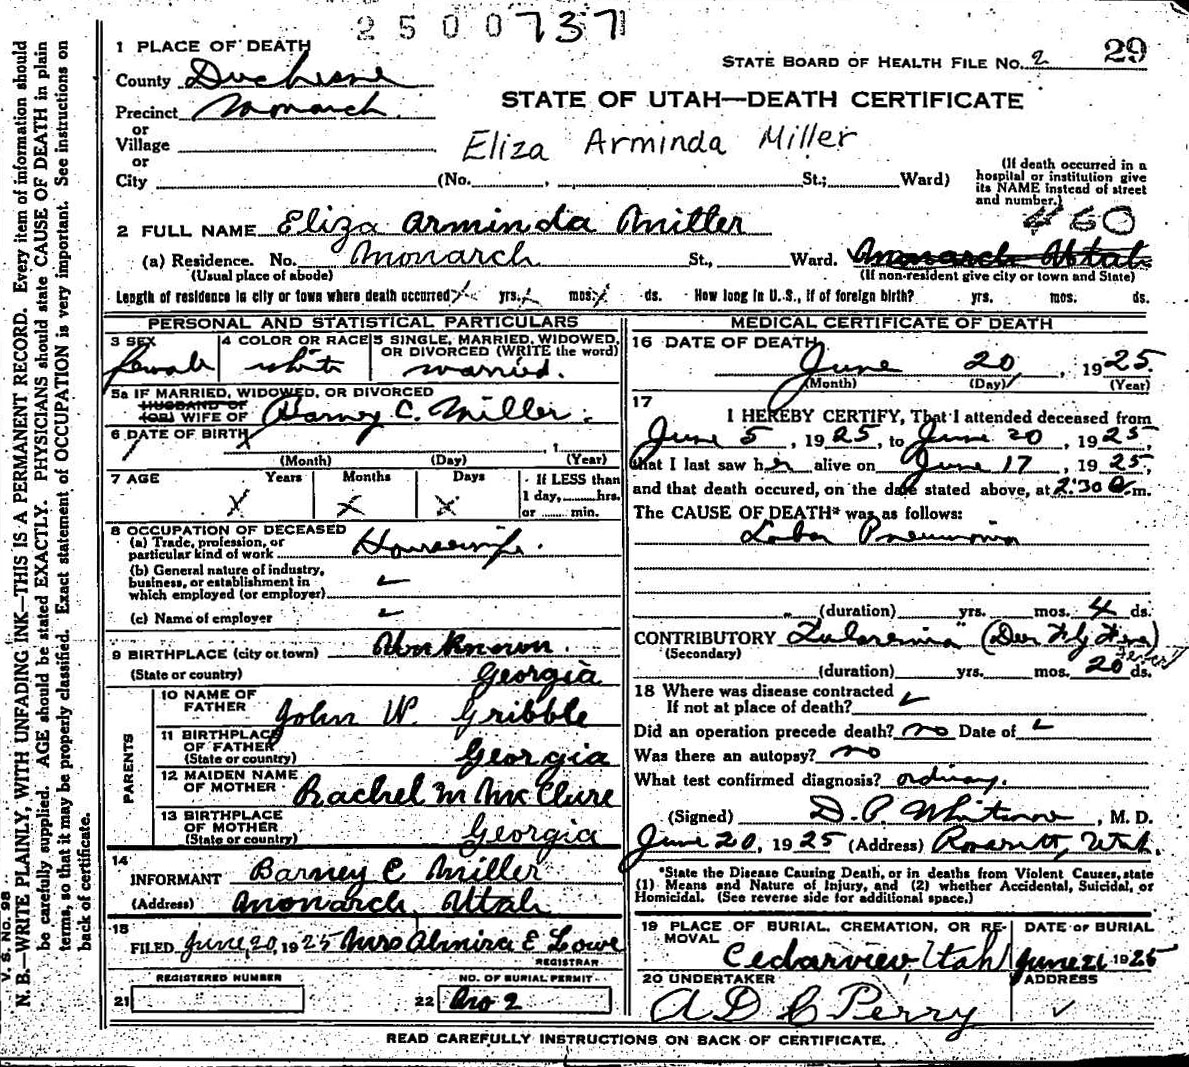 2500737
29
1 PLACE OF DEATH
STATE BOARD OF HEALTH FILE No. 2
County Duchesne
Precinct Monarch
STATE OF UTAH—DEATH CERTIFICATE
or
Village
Eliza Arminda Miller
or
City (No. , St.; Ward)
(If death occurred in a hospital or institution give its NAME instead of street and number.)
#60
2 FULL NAME Eliza Arminda Miller
(a) Residence. No. Monarch St., Ward. Monarch Utah
(Usual place of abode) (If non-resident give city or town and State)
Length of residence in city or town where death occurred yrs. mos. ds. How long in U.S., if of foreign birth? yrs. mos. ds.
PERSONAL AND STATISTICAL PARTICULARS
3 SEX female
4 COLOR OR RACE white
5 SINGLE, MARRIED, WIDOWED, OR DIVORCED (WRITE the word) married.
5a IF MARRIED, WIDOWED, OR DIVORCED
HUSBAND OF
(OR) WIFE OF Barney C. Miller.
6 DATE OF BIRTH , 1
(Month) (Day) (Year)
7 AGE Years Months Days If LESS than
X X X 1 day, hrs.
or min.
8 OCCUPATION OF DECEASED
(a) Trade, profession, or
particular kind of work Housewife.
(b) General nature of industry,
business, or establishment in
which employed (or employer)
(c) Name of employer
9 BIRTHPLACE (city or town) Unknown.
(State or country) Georgia
PARENTS
10 NAME OF FATHER John W. Gribble
11 BIRTHPLACE OF FATHER (State or country) Georgia
12 MAIDEN NAME OF MOTHER Rachel M McClure
13 BIRTHPLACE OF MOTHER (State or country) Georgia
14
INFORMANT Barney C Miller
(Address) Monarch, Utah
15
FILED June 20, 1925 Mrs Almira E Lowe
REGISTRAR
REGISTERED NUMBER
21
NO. OF BURIAL PERMIT
22 No 2
MEDICAL CERTIFICATE OF DEATH
16 DATE OF DEATH
June 20, 1925.
(Month) (Day) (Year)
17
I HEREBY CERTIFY, That I attended deceased from
June 5, 1925, to June 20, 1925,
that I last saw her alive on June 17, 1925,
and that death occured, on the date stated above, at 2:30 a.m.
The CAUSE OF DEATH* was as follows:
Lobar Pneumonia
(duration) yrs. mos. 4 ds.
CONTRIBUTORY Tularemia (Deer Fly Fever)
(Secondary) fever
(duration) yrs. mos. 20 ds.
18 Where was disease contracted
If not at place of death?
Did an operation precede death? no Date of
Was there an autopsy? no
What test confirmed diagnosis? ordinary.
(Signed) D. P. Whitmore, M. D.
June 20, 1925 (Address) Roosevelt, Utah.
*State the Disease Causing Death, or in deaths from Violent Causes, state
(1) Means and Nature of Injury, and (2) whether Accidental, Suicidal, or
Homicidal. (See reverse side for additional space.)
19 PLACE OF BURIAL, CREMATION, OR REMOVAL
Cedarview, Utah
DATE OF BURIAL
June 21 1925
20 UNDERTAKER
A D C Perry
ADDRESS
READ CAREFULLY INSTRUCTIONS ON BACK OF CERTIFICATE.
V. S. No. 98
N. B.—WRITE PLAINLY, WITH UNFADING INK—THIS IS A PERMANENT RECORD. Every item of information should
be carefully supplied. AGE should be stated EXACTLY. PHYSICIANS should state CAUSE OF DEATH in plain
terms, so that it may be properly classified. Exact statement of OCCUPATION is very important. See instructions on
back of certificate.